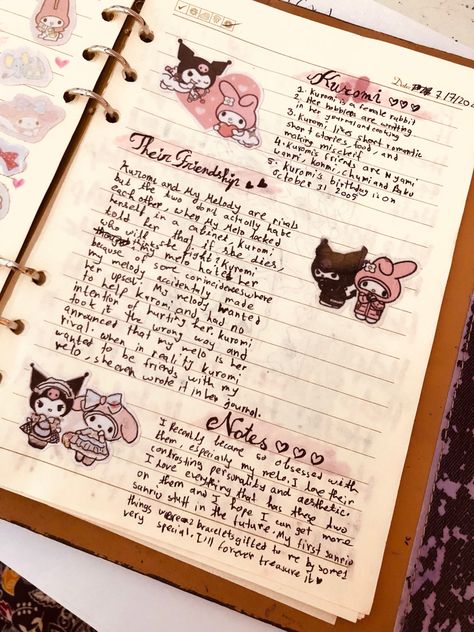 Date: 7/7/20
Kuromi
1. Kuromi is a female rabbit
2. Her hobbies are writting
in her journal and cooking
3. Kuromi likes short romantic
short stories, food and
making mischeif
4. Kuromi's friends are Nyami
wanni, konmi, chumi and Baku
5. Kuromi's birthday is on
October 31 2005
Their Friendship
Kuromi and My Melody are rivals
but the two don't actually hate
each other, when My Melo locked
herself in a cabinet, Kuromi
told her that if she dies,
who will she fight? Kuromi
thought my melo hated her
because of some coincidences where
my melody accidentaly made
her upset. My Melody wanted
to help kuromi and had no
intention of hurting her. Kuromi
took it the wrong way and
announced that my melo is her
rival. when in reality kuromi
wanted to be friends with my
melo, she even wrote it in her journal.
Notes
I Recently became so obsessed with
them, especially my melo. I love their
contrasting personality and aesthetic.
I love everything that has these two
on them and I hope I can get more
sanrio stuff in the future. My first sanrio
things were 2 bracelets gifted to me by some1
very special. I'll forever treasure it